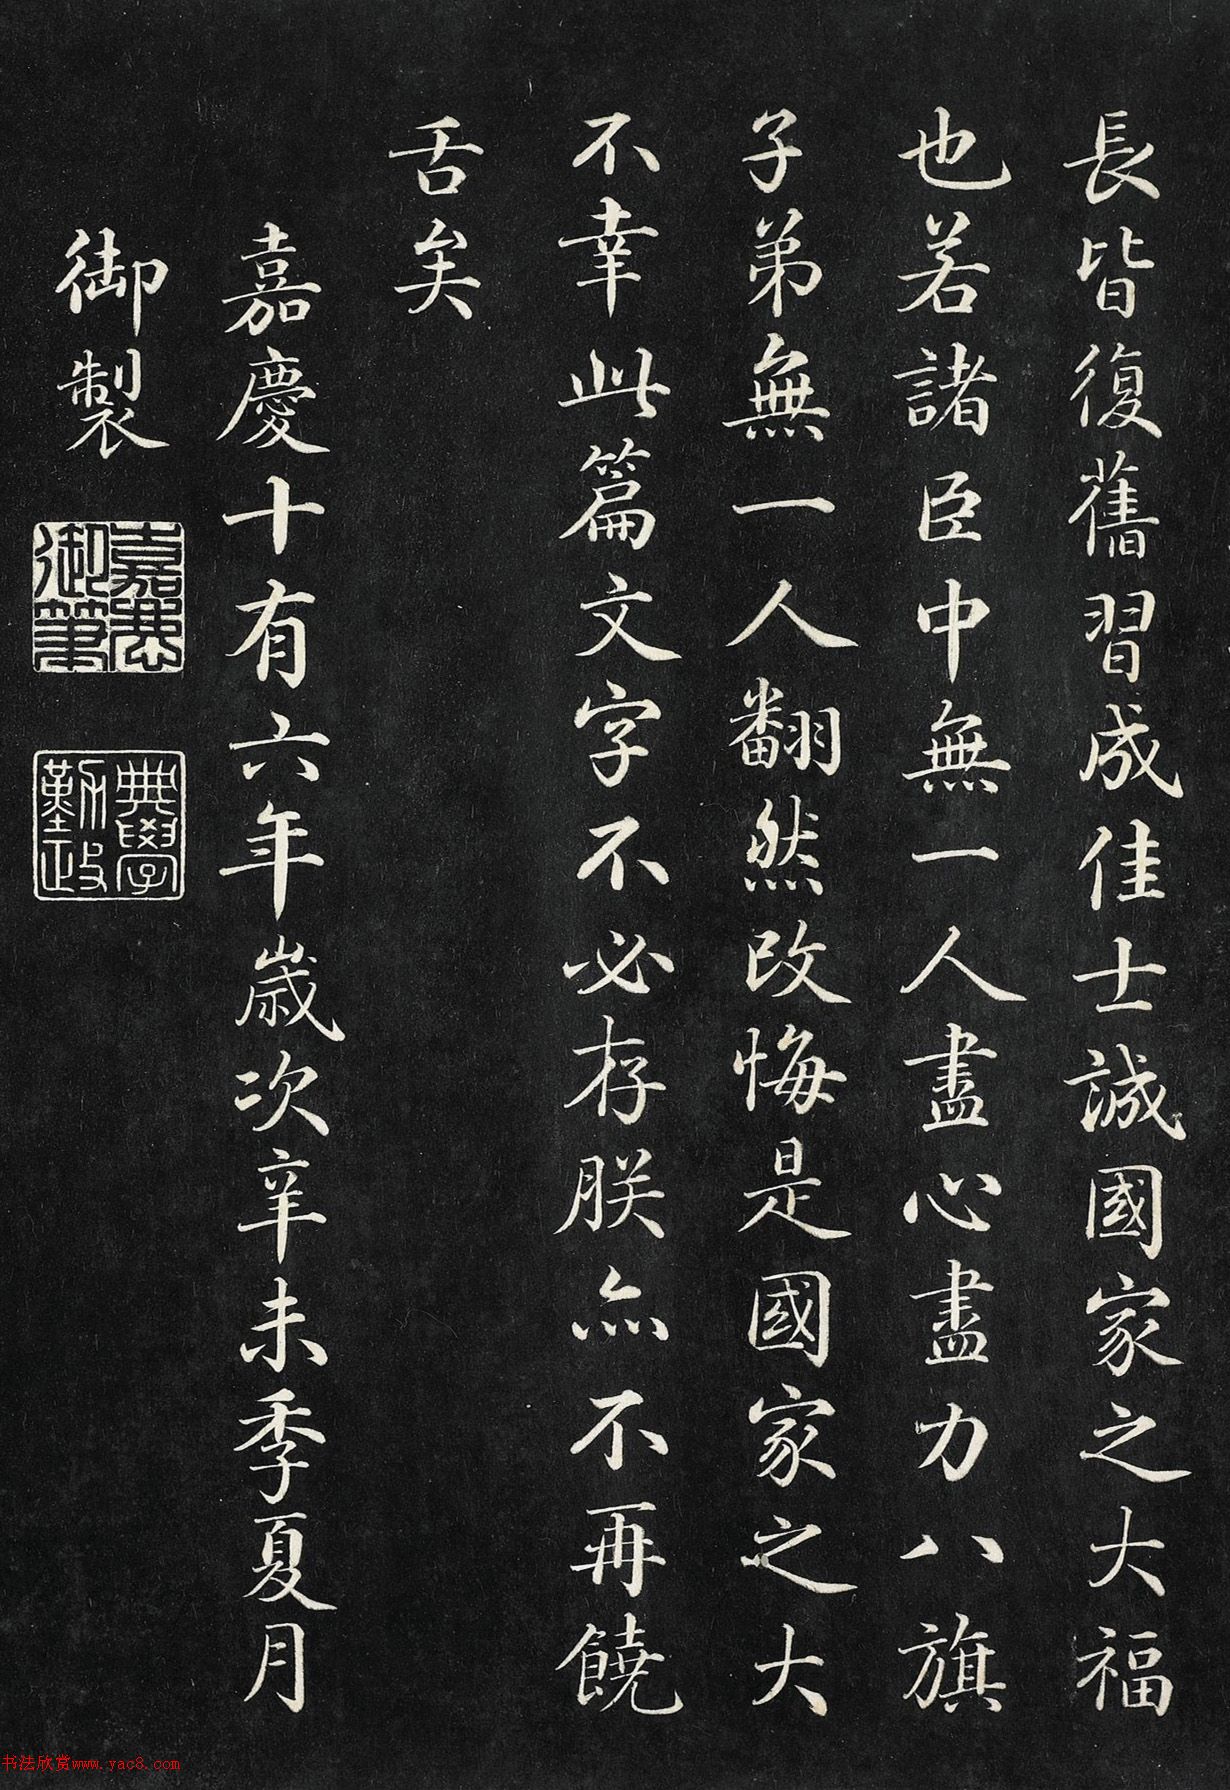 長皆復舊習成佳士誠國家之大福
也若諸臣中無一人盡心盡力八旗
子弟無一人翻然改悔是國家之大
不幸此篇文字不必存朕亦不再饒
舌矣
嘉慶十有六年歲次辛未季夏月
御製
嘉慶
御筆
典學
勤政
书法欣赏www.yac8.com